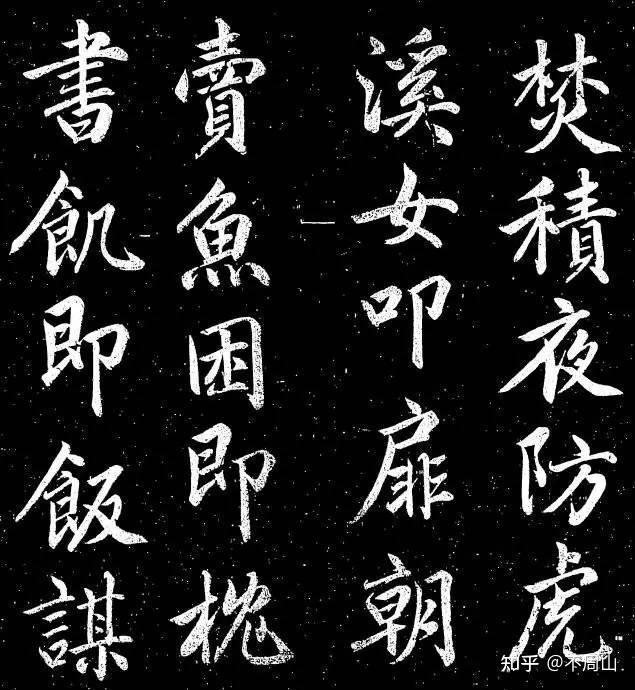 焚積夜防虎
溪女叩扉朝
賣魚困即枕
書飢即飯謀
知乎 @不周山